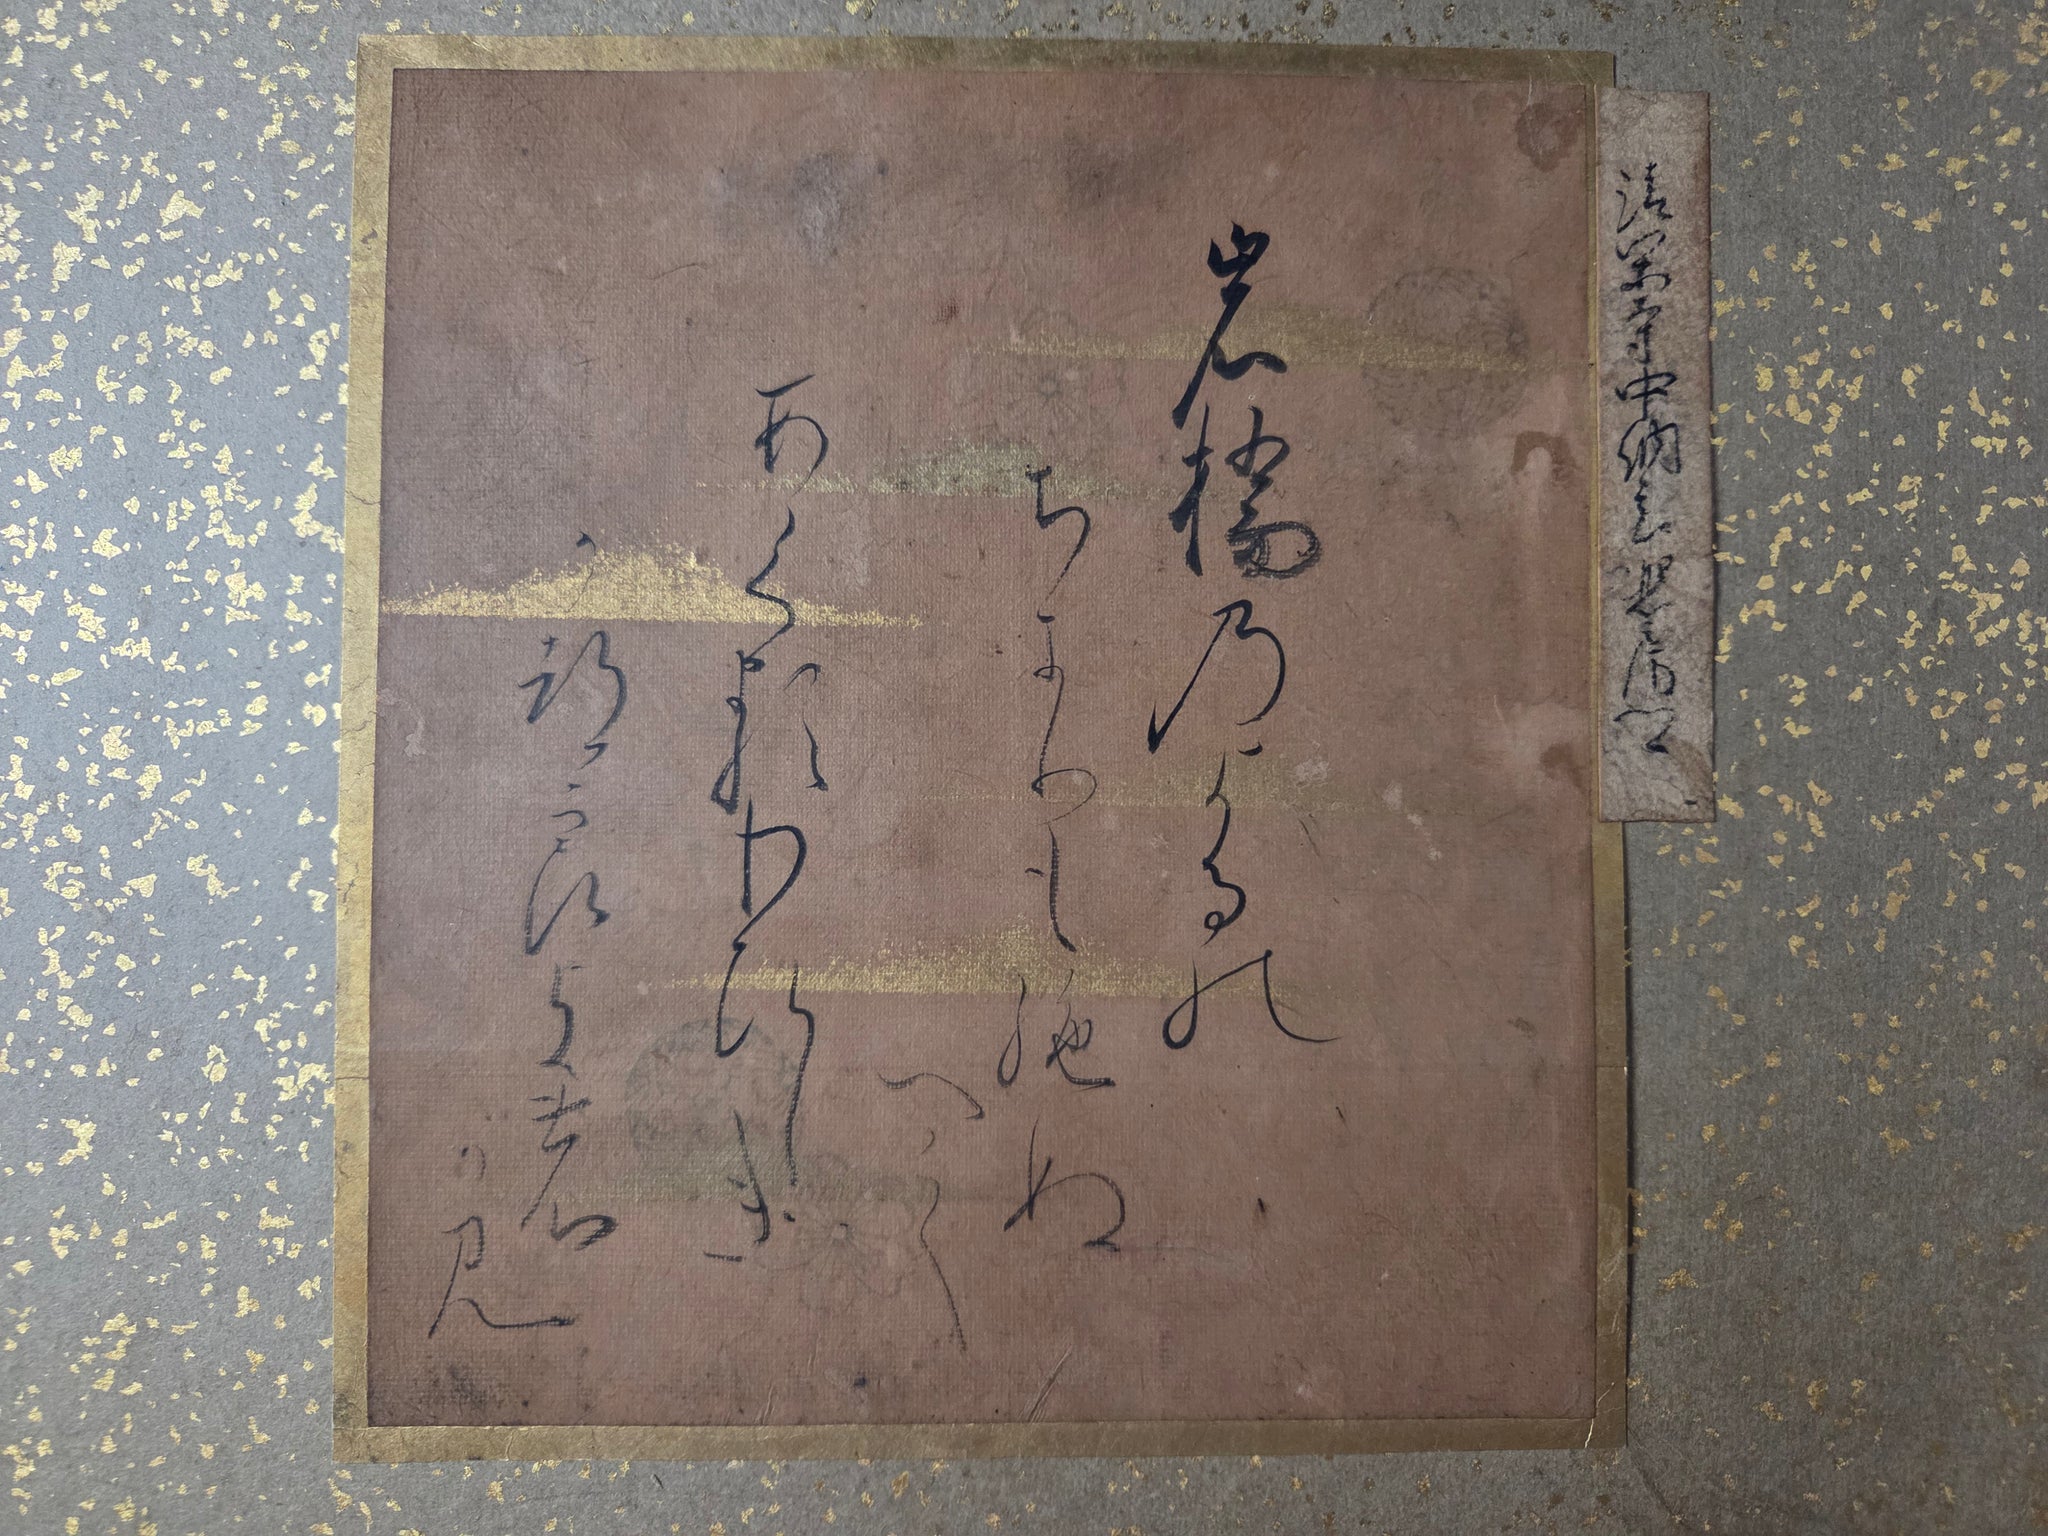 清閑寺中納言熙房公
岩橋乃よるの
ちきりも絶ぬ
へし
あくるわひしき
かつらきの
か見